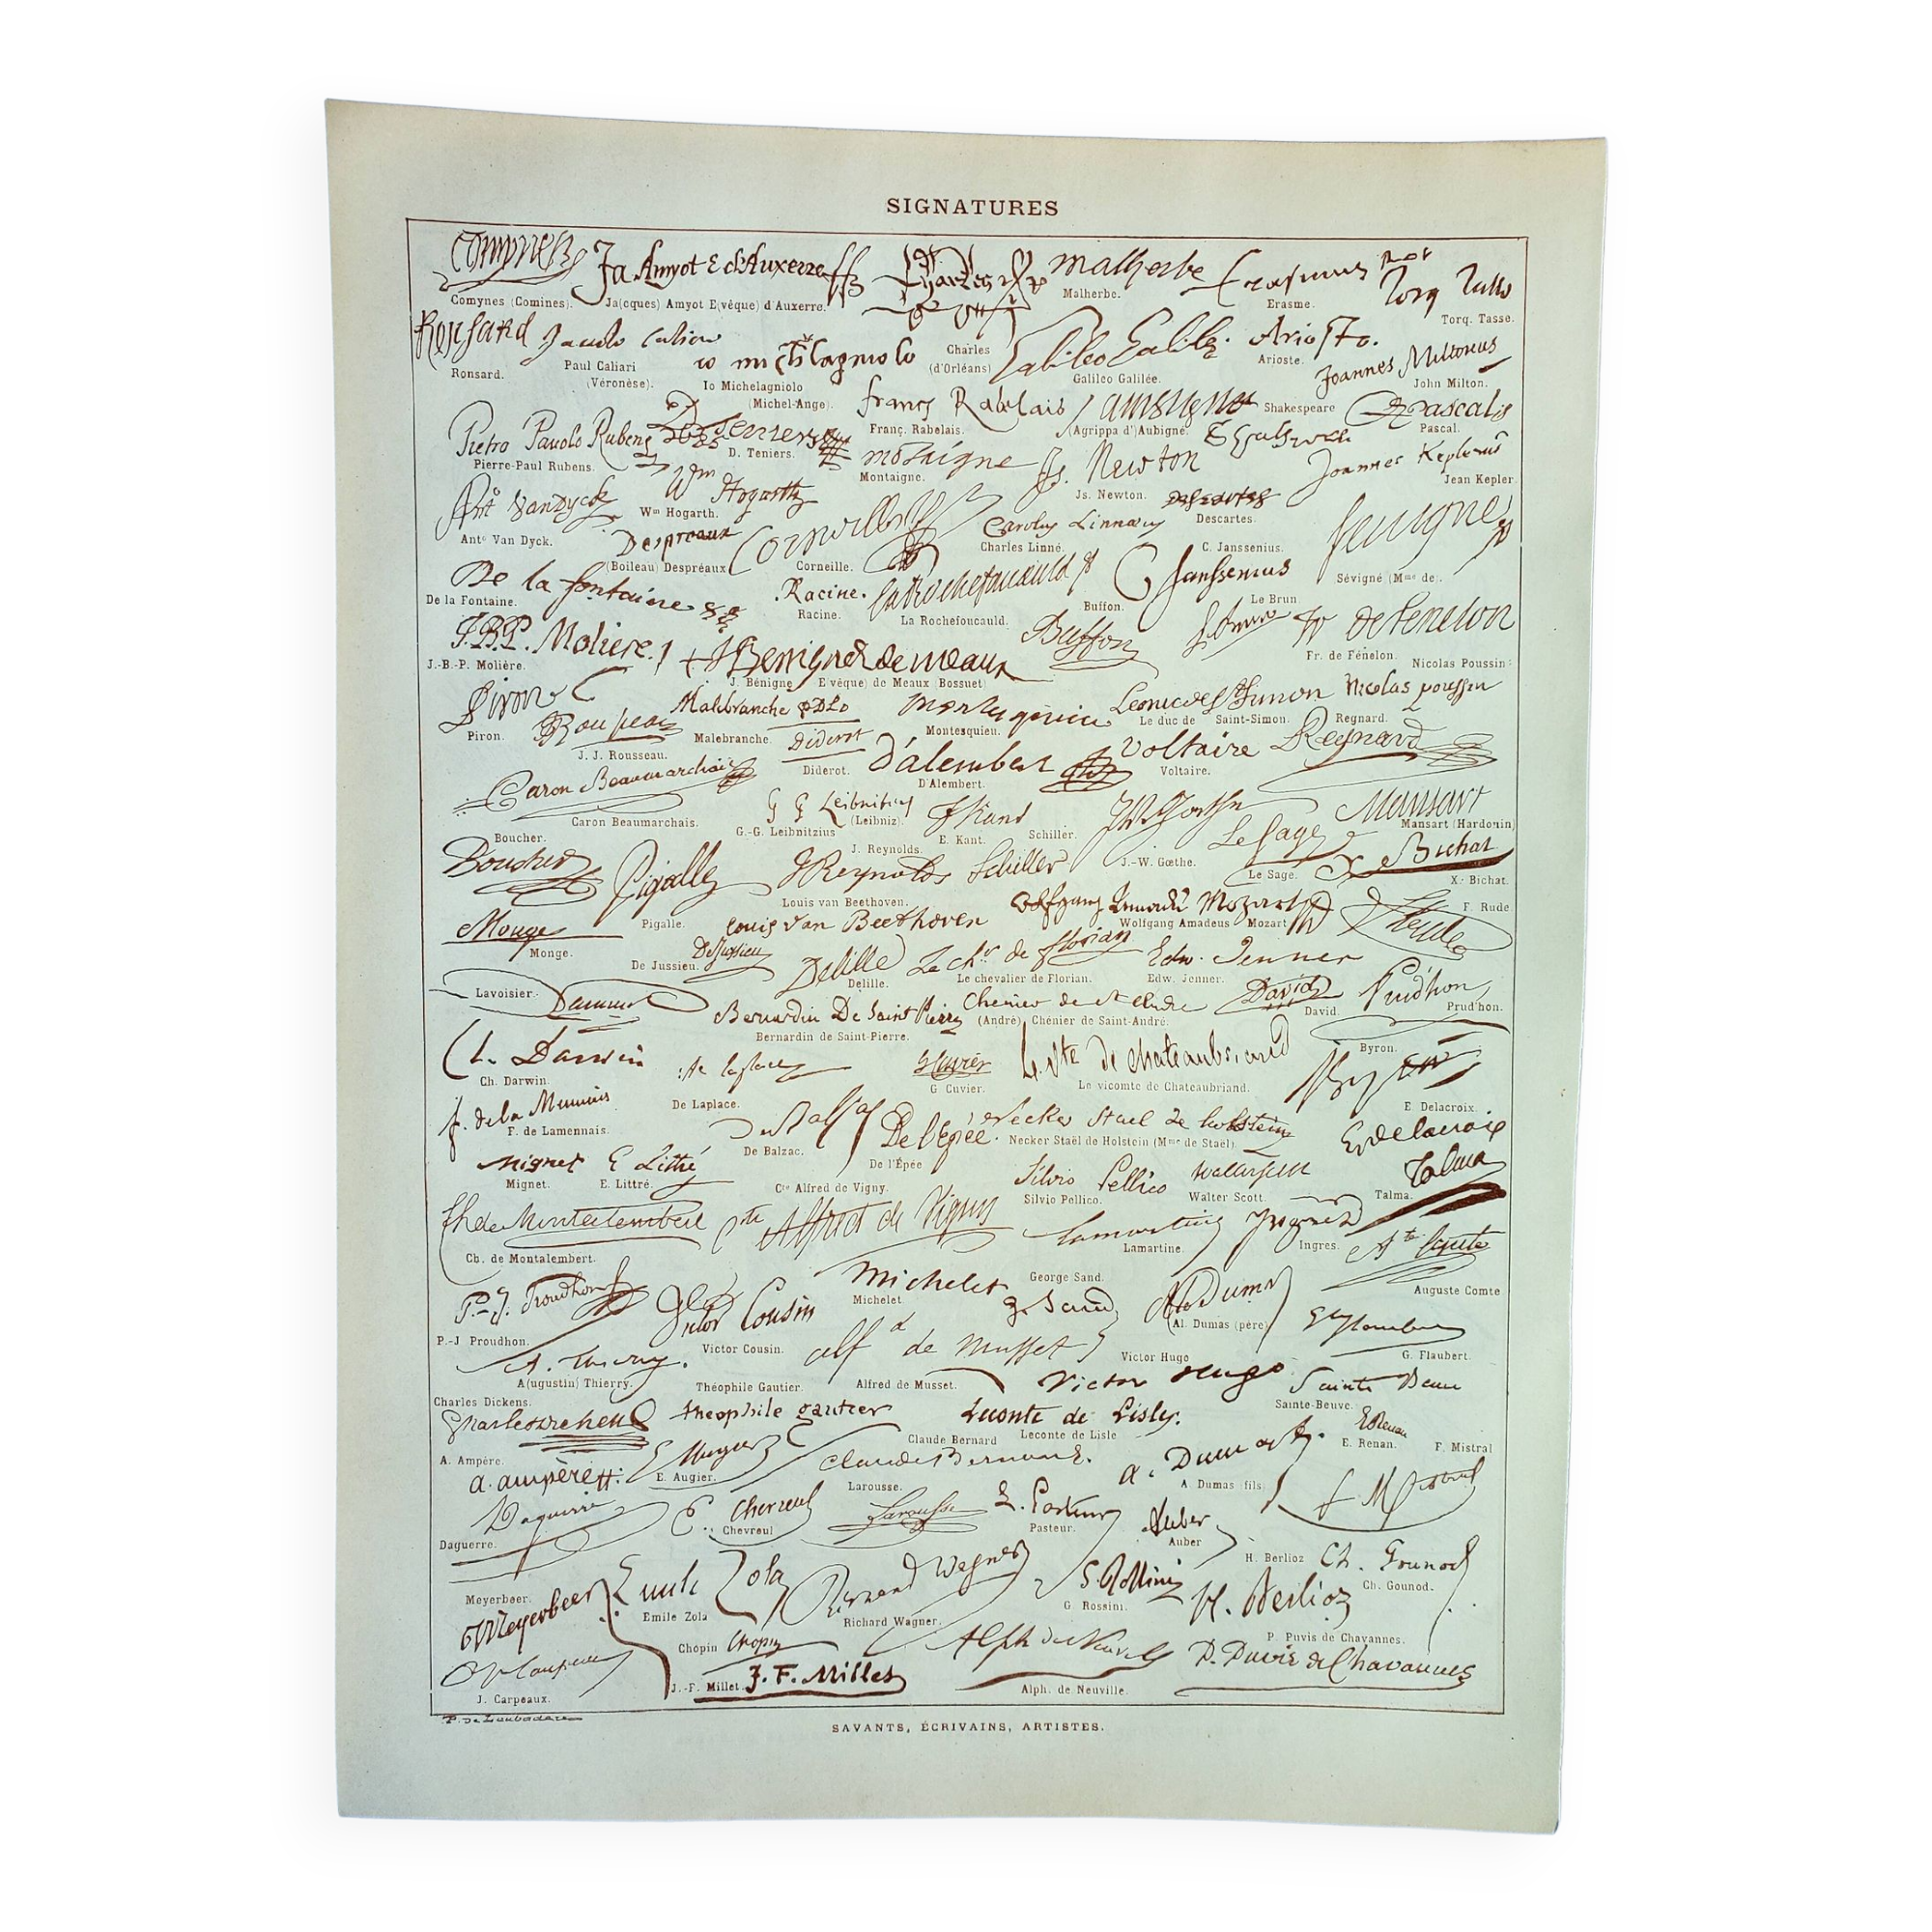 SIGNATURES
Comynes (Comines).
Ja Amyot E d'Auxerre
Ja(cques) Amyot E(vêque) d'Auxerre.
Charles
(d'Orléans)
Malherbe
Malherbe.
Erasmus Rot
Erasme.
Torq Tasso
Torq. Tasse.
Ronsard
Ronsard.
Paulo Caliari
Paul Caliari
(Véronèse).
io michelagniolo
Io Michelagniolo
(Michel-Ange).
Galileo Galilei.
Galileo Galilée.
Ariosto.
Arioste.
Joannes Miltonius
John Milton.
Pietro Pauolo Rubens
Pierre-Paul Rubens.
D. Teniers.
Franç Rabelais
Franç. Rabelais.
(Agrippa d')Aubigné.
Shakespeare
Pascal.
Montaigne.
Js. Newton
Js. Newton.
Joannes Keplerus
Jean Kepler.
Antº Van Dyck
Antº Van Dyck.
Wm Hogarth
Wm Hogarth.
Despreaux
(Boileau) Despréaux
Corneille
Corneille.
Carolus Linnæus
Charles Linné.
Descartes
Descartes.
C. Janssenius.
C Janssenius
Sevigné
Sévigné (Mme de).
De la fontaine
De la Fontaine.
.Racine.
Racine.
La Rochefoucauld
La Rochefoucauld.
Buffon.
Buffon
Le Brun
fr de Fenelon
Fr. de Fénelon.
J.B.P. Moliere.
J.-B.-P. Molière.
+ J Benigne E de meaux
J. Bénigne E(vêque) de Meaux (Bossuet)
Nicolas Poussin.
Nicolas poussin
Piron
Piron.
Rousseau
J. J. Rousseau.
Malebranche
Malebranche.
Montesquieu.
Le duc de Saint-Simon.
Regnard.
Regnard
Diderot
Diderot.
D'alembert
D'Alembert.
Voltaire
Voltaire.
Caron Beaumarchais
Caron Beaumarchais.
G G Leibnitius
G.-G. Leibnitzius (Leibniz).
J Kant
E. Kant.
Schiller.
JWGoethe
J.-W. Gœthe.
Mansart
Mansart (Hardouin)
Boucher.
Boucher
Pigalle
Pigalle.
J. Reynolds.
JReynolds
Schiller
Le Sage
Le Sage.
X. Bichat
X. Bichat.
Louis van Beethoven.
Louis van Beethoven
Wolfgang Amadeus Mozart
Wolfgang Amadeus Mozart
F. Rude
F Rude
Monge
Monge.
De Jussieu
De Jussieu.
Delille
Délille.
Le chr de florian
Le chevalier de Florian.
Edw. Jenner
Edw. Jenner.
Lavoisier.
Bernardin De Saint Pierre
Bernardin de Saint-Pierre.
Chenier de St Andre
(André) Chénier de Saint-André.
David
David.
Prudhon
Prud'hon.
Ch. Darwin
Ch. Darwin.
De Laplace.
G Cuvier
G Cuvier.
Le Vte de chateaubriand
Le vicomte de Chateaubriand.
Byron.
Byron
f. de la Mennais
F. de Lamennais.
De Balzac
De Balzac.
De l'Epée.
De l'Épée
Necker Stael de holstein
Necker Staël de Holstein (Mme de Staël).
E. Delacroix.
E Delacroix
Mignet
Mignet.
E Littré
E. Littré.
Cte Alfred de Vigny.
Silvio Pellico
Silvio Pellico.
Walter Scott
Walter Scott.
Talma.
Talma
Ch de Montalembert
Ch. de Montalembert.
Cte Alfred de Vigny
Lamartine
Lamartine.
Ingres
Ingres.
Ate Comte
Auguste Comte
P.-J. Proudhon
P.-J Proudhon.
Victor Cousin
Victor Cousin.
Michelet
Michelet.
George Sand.
G. Sand
Al Dumas
(Al. Dumas (père)
G. Flaubert.
A. Thierry.
A(ugustin) Thierry.
alfd de Musset
Alfred de Musset.
Victor Hugo
Victor Hugo
Sainte Beuve
Sainte-Beuve.
Charles Dickens.
Charles Dickens
Théophile Gautier.
théophile gautier
Leconte de Lisle.
Leconte de Lisle
E Renan
E. Renan.
F. Mistral
A. Ampère.
a. ampère
E. Augier
E. Augier.
Claude Bernard
Claude Bernard.
A. Dumas fils.
A. Dumas (fils)
F Mistral
Daguerre
Daguerre.
E. Chevreul
Chevreul
Larousse.
Larousse
L. Pasteur
Pasteur.
Auber
Auber
Meyerbeer.
Meyerbeer
Emile Zola
Emile Zola
Richard Wagner
Richard Wagner.
G. Rossini
G. Rossini.
H. Berlioz
H. Berlioz
Ch. Gounod
Ch. Gounod.
J. Carpeaux.
Chopin
Chopin
J.-F. Millet.
J. F. Millet
Alph de Neuville
Alph. de Neuville.
P. Puvis de Chavannes.
P. Puvis de Chavannes
SAVANTS, ÉCRIVAINS, ARTISTES.